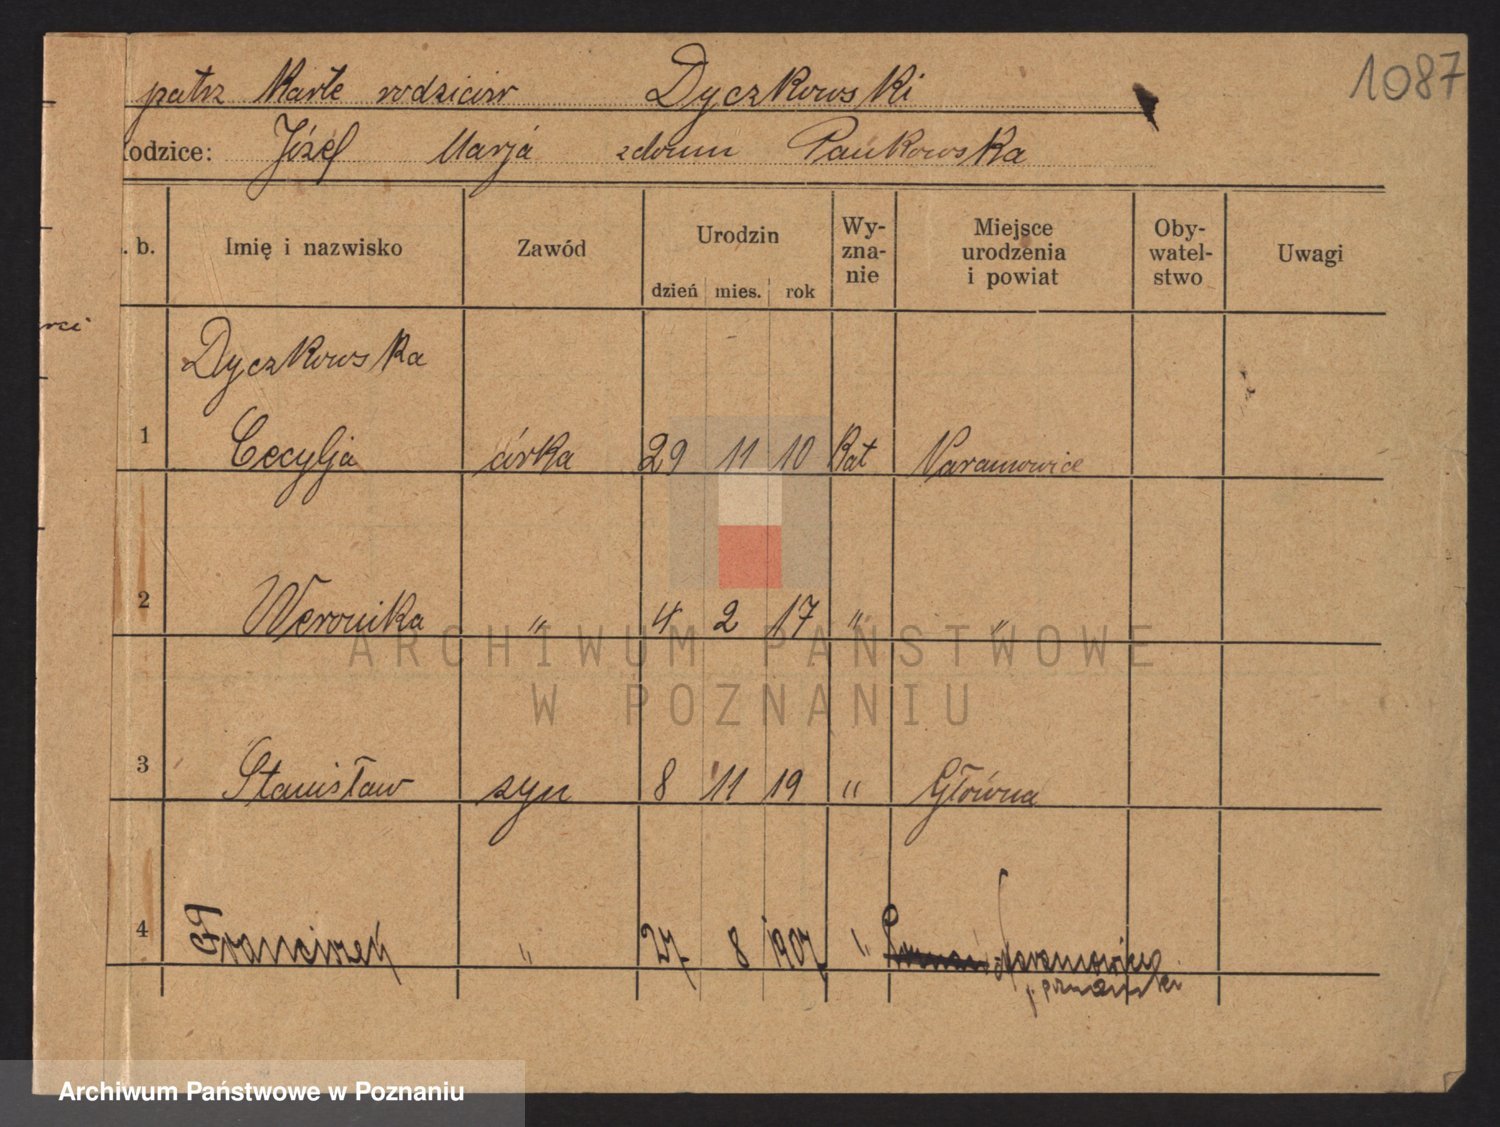 1087
patrz Kartę rodziców Dyczkowski
odzice: Józef Marja zdomu Pańkowska
. b. Imię i nazwisko Zawód Urodzin dzień mies. rok Wy-zna-nie Miejsce urodzenia i powiat Oby-watel-stwo Uwagi
Dyczkowska
1 Cecylja córka 29 11 10 Kat Naramowice
2 Weronika " 4 2 17 " "
3 Stanisław syn 8 11 19 " Główna
4 Franciszek " 27 8 1907 " Naramowice
p. poznański
ARCHIWUM PAŃSTWOWE
W POZNANIU
Archiwum Państwowe w Poznaniu